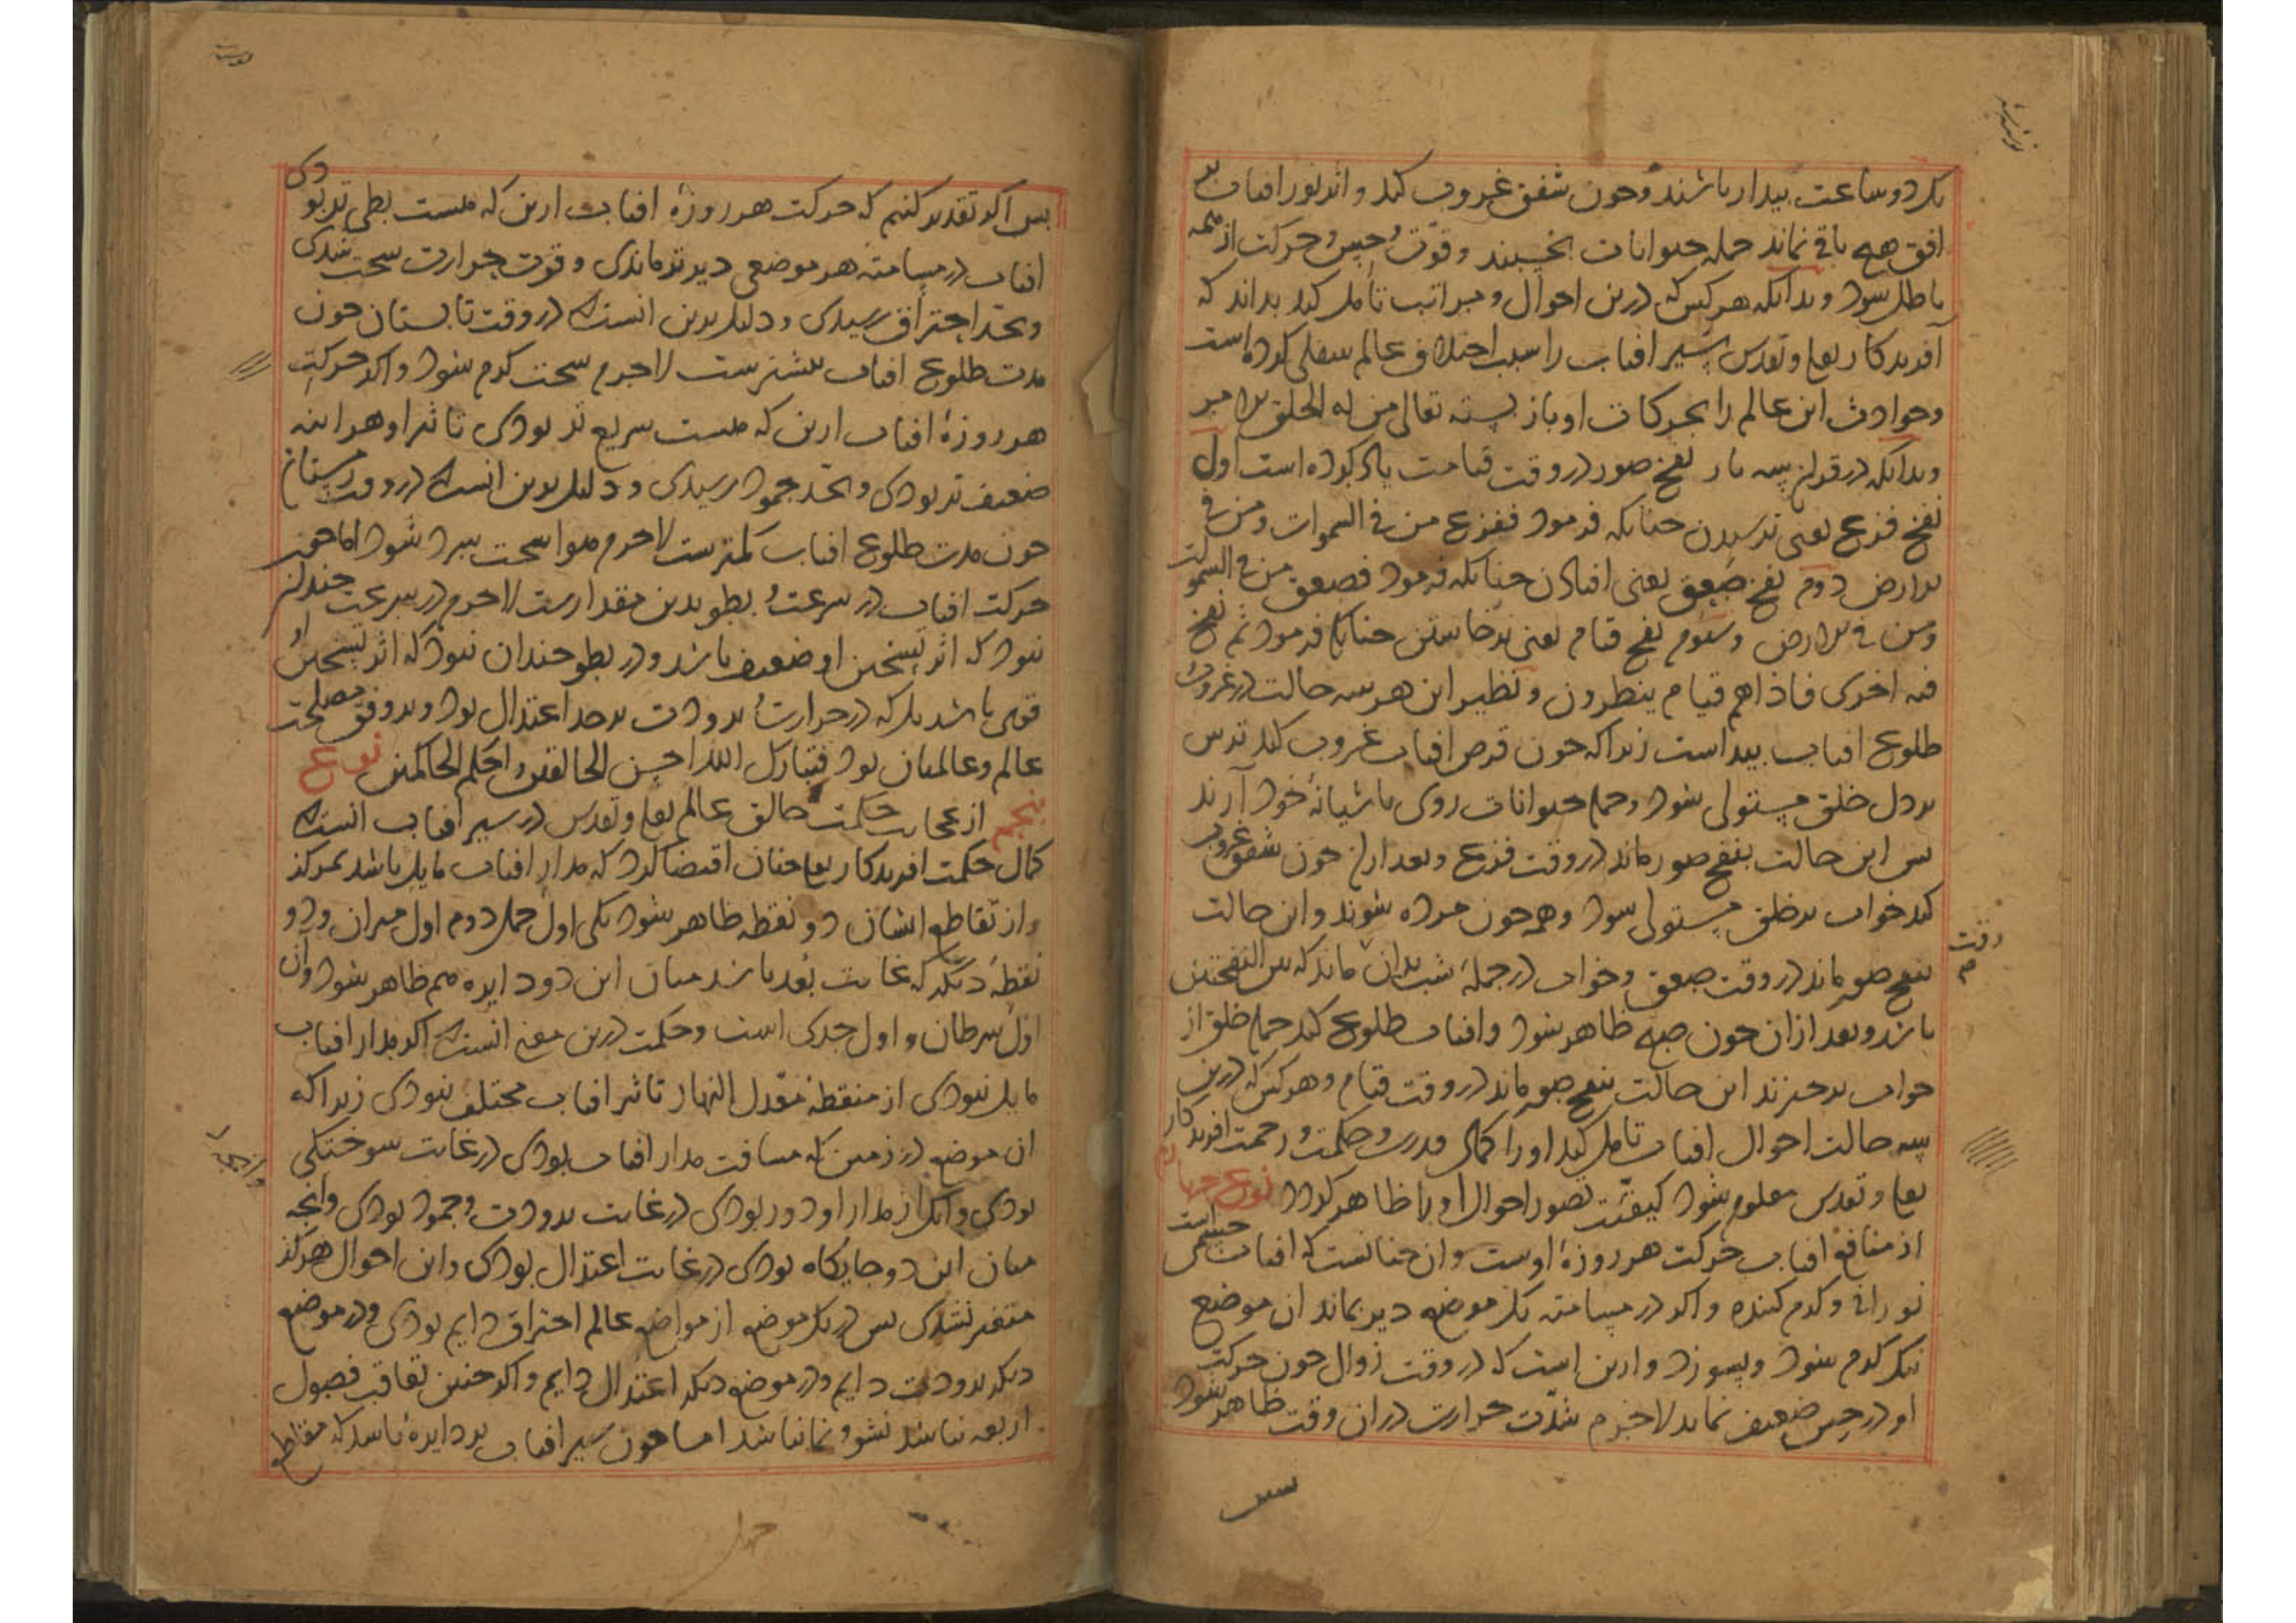 یک دو ساعت بیدار باشند و چون شفق غروب کند و اثر نور افتاب بر
افق هیچ باقی نماند جمله حیوانات بخسبند و قوّت حس و حرکت از همه
باطل شود و بدانکه هر کس که درین احوال و مراتب تأمل کند بداند که
آفریدکار تعالی و تقدس سیر افتاب را سبب اختلاف عالم سفلی کرده است
و حوادث این عالم را بحرکات او باز بسته تعالی من له الخلق و الامر
و بدانکه در قران سه بار نفخ صور در وقت قیامت یاد کرده است اول
نفخ فزع یعنی ترسیدن چنانکه فرمود ففزع من فی السموات ومن فی
الارض دوم نفخ صعق یعنی افتادن چنانکه فرمود فصعق من فی السموات
ومن فی الارض و سوم نفخ قیام یعنی برخاستن چنانکه فرمود ثم نفخ
فیه اخری فاذاهم قیام ینظرون و نظیر این هر سه حالت در غروب و
طلوع افتاب پیداست زیرا که چون قرص افتاب غروب کند ترس
بر دل خلق مستولی شود و جمله حیوانات روی باشیانهٔ خود آرند
پس این حالت بنفخ صور ماند در وقت فزع و بعد ازان چون شفق غروب
کند خواب بر خلق مستولی شود و همه چون مرده شوند و این حالت
بنفخ صور ماند در وقت صعق و خواب در جملهٔ شب بدان ماند که بین النفختین
وقت
باشد و بعد ازان چون صبح ظاهر شود و افتاب طلوع کند جمله خلق از
خواب برخیزند این حالت بنفخ صور ماند در وقت قیام و هر کس که درین
سه حالت احوال افتاب تامل کند او را کمال قدرت و حکمت و رحمت افریدکار
تعالی و تقدس معلوم شود کیفیّت تصور احوال او را ظاهر کردد نوع چهارم
از منافع افتاب حرکت هر روزهٔ اوست و ان چنانست که افتاب جسمی است
نورانی و کرم کننده و اکر در مسامته یک موضع دیر بماند ان موضع
نیک کرم شود و بسوزد و ازین است که در وقت زوال چون حرکت
او در حس ضعیف نماید لاجرم شدّت حرارت در ان وقت ظاهر شود
پس
پس اکر تقدیر کنیم که حرکت هر روزهٔ افتاب ازین که هست بطی تر بودی
افتاب در مسامته هر موضعی دیرتر ماندی و قوت حرارت سخت شدی
و بحد احتراق رسیدی و دلیل برین انست که در وقت تابستان چون
مدت طلوع افتاب بیشترست لاجرم سخت کرم شود و اکر حرکت
هر روزهٔ افتاب ازین که هست سریع تر بودی تاثیر او هر اینه
ضعیف تر بودی و بحد جمود رسیدی و دلیل برین انست که در وقت زمستان
چون مدت طلوع افتاب کمترست لاجرم هوا سخت سرد شود اما چون
حرکت افتاب در سرعت و بطو بدین مقدارست لاجرم در سرعت چندان
نبود که اثر تسخین او ضعیف باشد و در بطو چندان نبود که اثر تسخین او
قوی باشد بلکه در حرارت و برودت بر حد اعتدال بود و بر وفق مصلحت
عالم و عالمیان بود فتبارک الله احسن الخالقین و احکم الحاکمین نوع
پنجم از عجایب حکمت خالق عالم تعالی و تقدس در سیر افتاب انست که
کمال حکمت افریدکار تعالی چنان اقتضا کرد که مدار افتاب مایل باشد بمرکز
و از تقاطع ایشان دو نقطه ظاهر شود یکی اول حمل دوم اول میزان و دو
نقطهٔ دیکر که غایت بُعد باشد میان این دو دایره هم ظاهر شود و آن
اول سرطان و اول جدی است و حکمت درین معنی انست که اکر مدار افتاب
مایل نبودی از منقطهٔ معدل النهار تاثیر افتاب مختلف نبودی زیرا که
ان موضع در زمین که مسافت مدار افتاب بودی در غایت سوختکی
بودی و انک از مدار او دور بودی در غایت برودت و جمود بودی و انچه
میان این دو جایکاه بودی در غایت اعتدال بودی و این احوال هرکز
متغیر نشدی پس در یک موضع از مواضع عالم احتراق دایم بودی و در موضع
دیکر برودت دایم و در موضع دیکر اعتدال دایم و اکر چنین تعاقب فصول
اربعه نباشد نشو و نما نباشد اما چون سیر افتاب بر دایرهٔ باشد که مقاطع